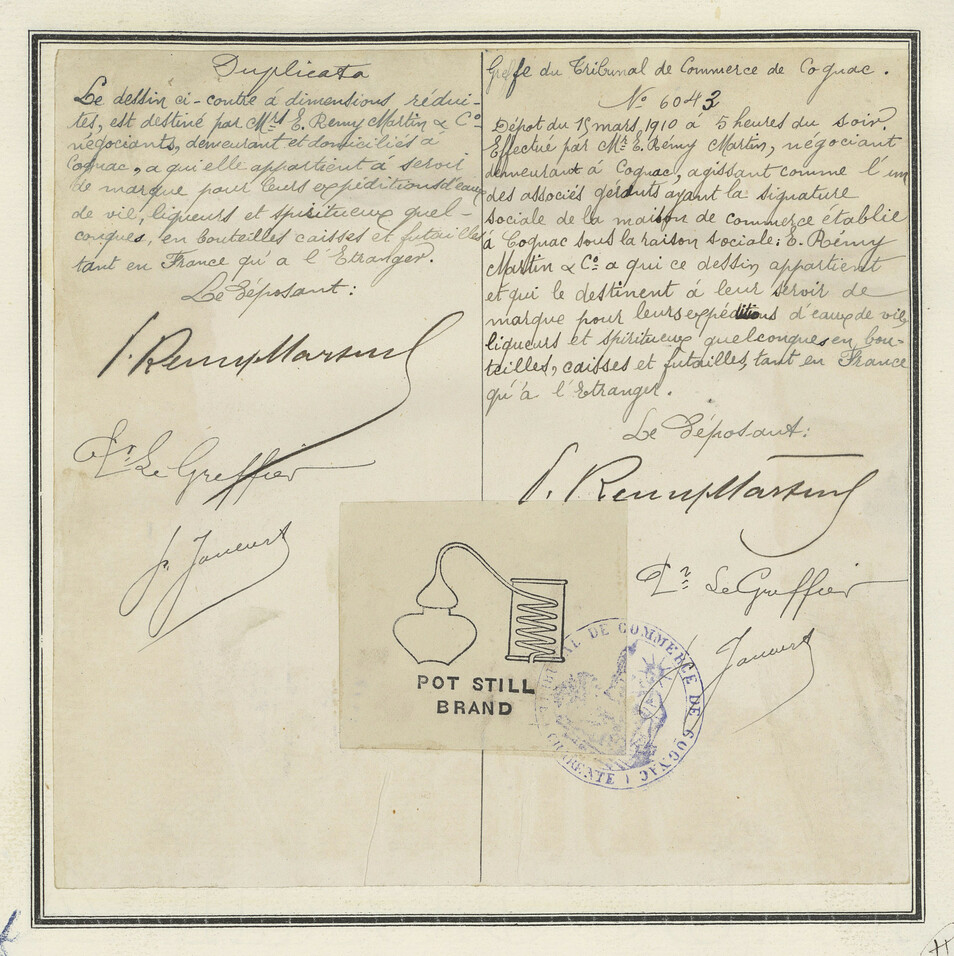 Duplicata
Le dessin ci-contre à dimensions rédui-
tes, est destiné par Mrs E. Remy Martin & Co
négociants, demeurant et domiciliés à
Cognac, a qu'elle appartient à servir
de marque pour leurs expéditions d'eaux
de vie, liqueurs et spiritueux quel-
conques, en bouteilles caisses et futailles
tant en France qu'a l'Etranger.
Le Déposant:
E. Remy Martin
Le Greffier
Greffe du Tribunal de Commerce de Cognac.
No 6043
Dépot du 15 mars 1910 à 5 heures du soir.
Effectué par Mr E. Rémy Martin, négociant
demeurant à Cognac, agissant comme l'un
des associés gérants ayant la signature
sociale de la maison de commerce établie
à Cognac sous la raison sociale: E. Rémy
Martin & Co a qui ce dessin appartient
et qui le destinent à leur servir de
marque pour leurs expéditions d'eaux de vie
liqueurs et spiritueux quelconques en bou-
teilles, caisses et futailles, tant en France
qu'à l'Etranger.
Le Déposant:
E. Remy Martin
Le Greffier
POT STILL
BRAND
TRIBUNAL DE COMMERCE DE COGNAC
CHARENTE
H